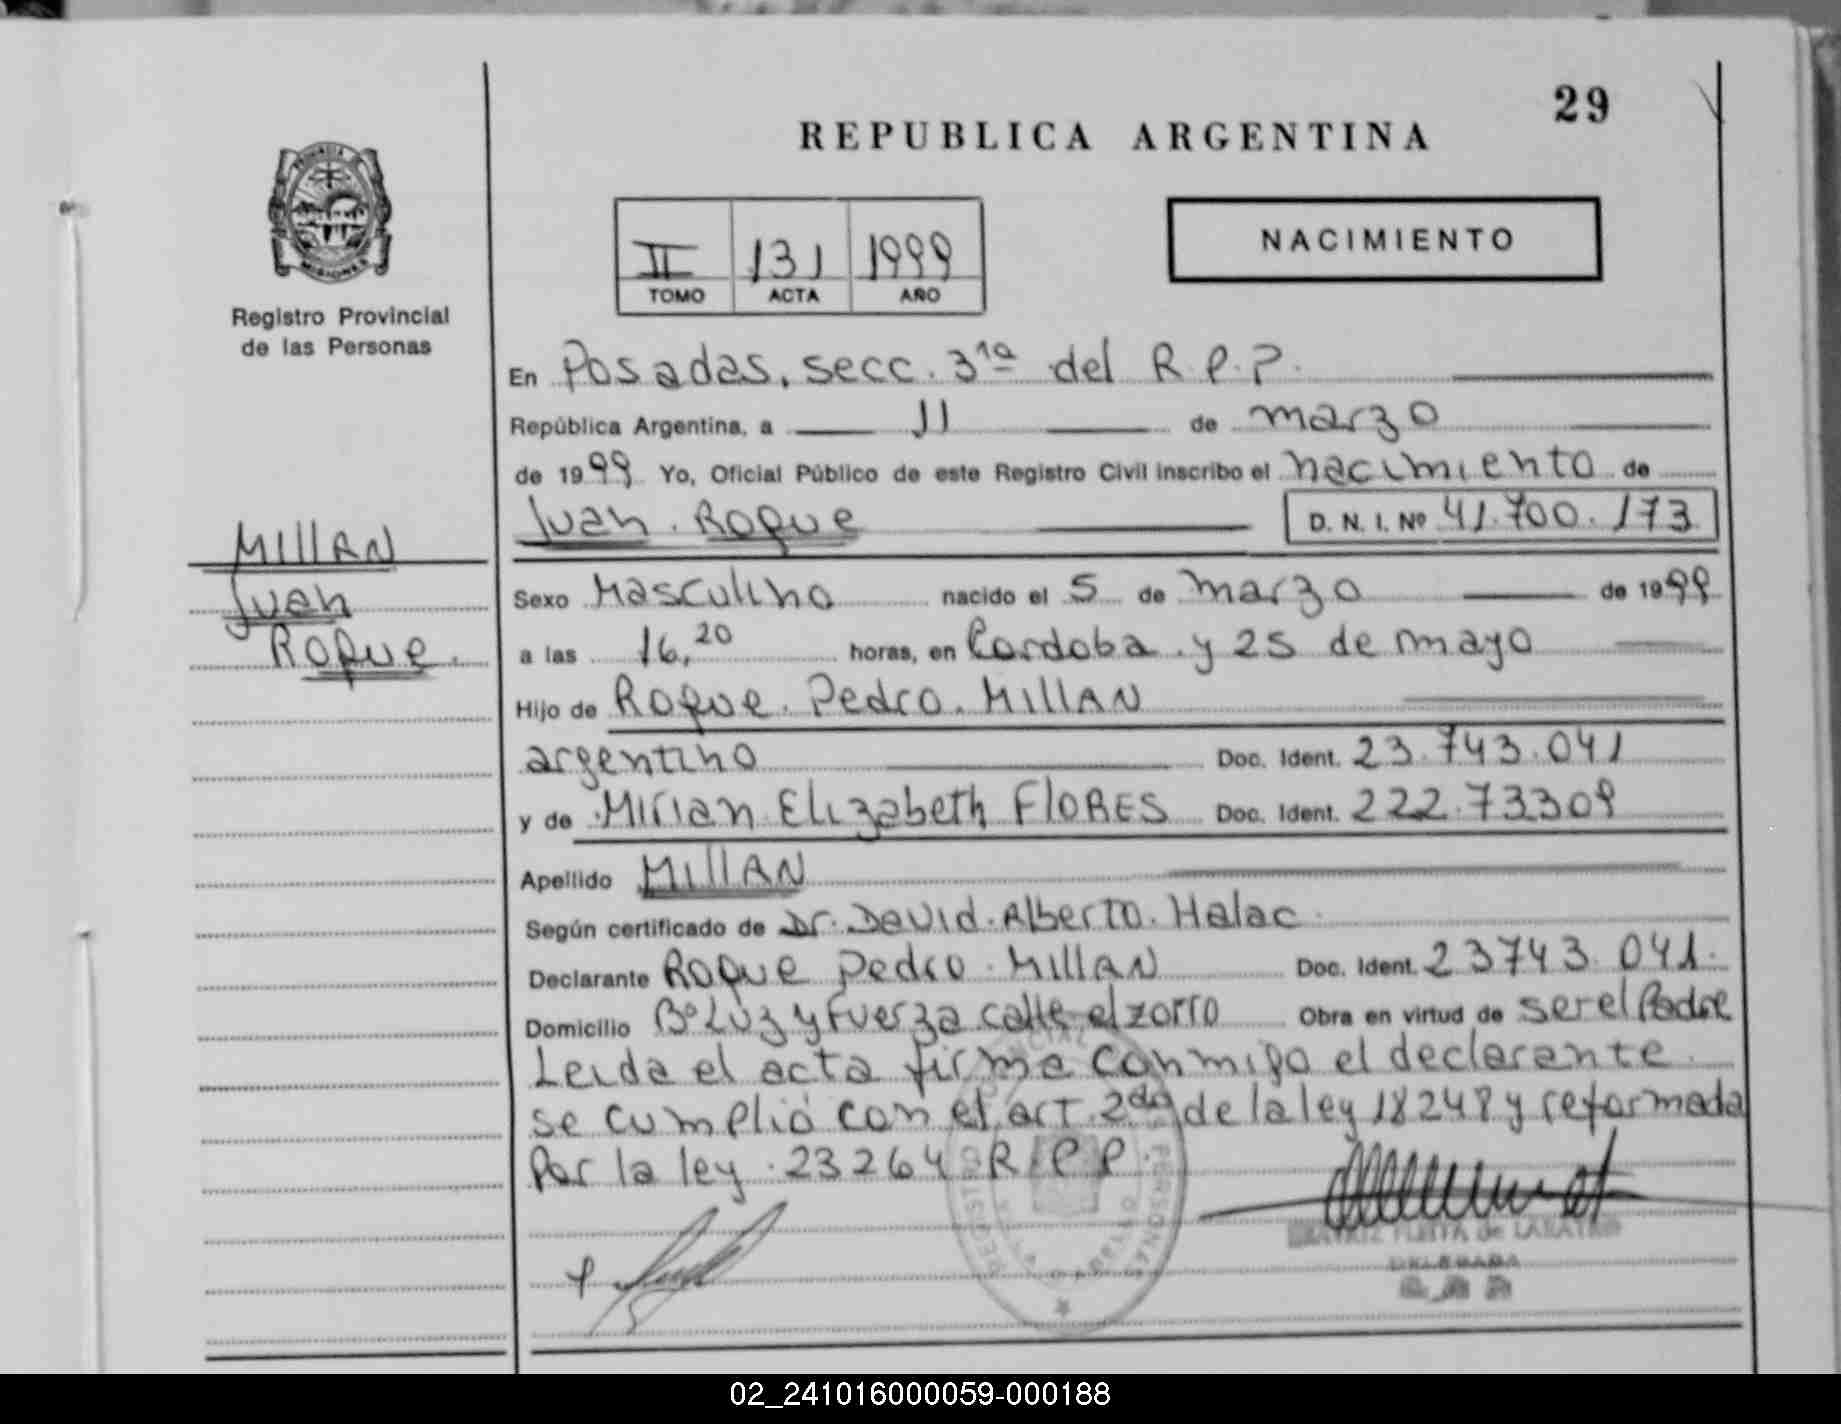 29
REPUBLICA ARGENTINA
PROVINCIA DE
MISIONES
Registro Provincial
de las Personas
II 131 1999
TOMO ACTA AÑO
NACIMIENTO
En Posadas, secc. 3ra del R.P.P.
República Argentina, a 11 de marzo
de 1999 Yo, Oficial Público de este Registro Civil inscribo el nacimiento de
Juan Roque D.N.I. Nº 41.700.173
MIllAN
Juan
Roque.
Sexo Masculino nacido el 5 de marzo de 1999
a las 16,20 horas, en Cordoba y 25 de mayo
Hijo de Roque Pedro MIllAN
argentino Doc. Ident. 23.743.041
y de Mirian Elizabeth FlORES Doc. Ident. 222.73309
Apellido MIllAN
Según certificado de Dr. David Alberto Halac
Declarante Roque Pedro MIllAN Doc. Ident. 23743.041.
Domicilio Bº Luz y Fuerza calle el zorro Obra en virtud de ser el Padre
Leida el acta firma conmigo el declarante
se cumplió con el art. 2do de la ley 18248 y reformada
Por la ley 23264 R.P.P.
DELEGADA
02_241016000059-000188